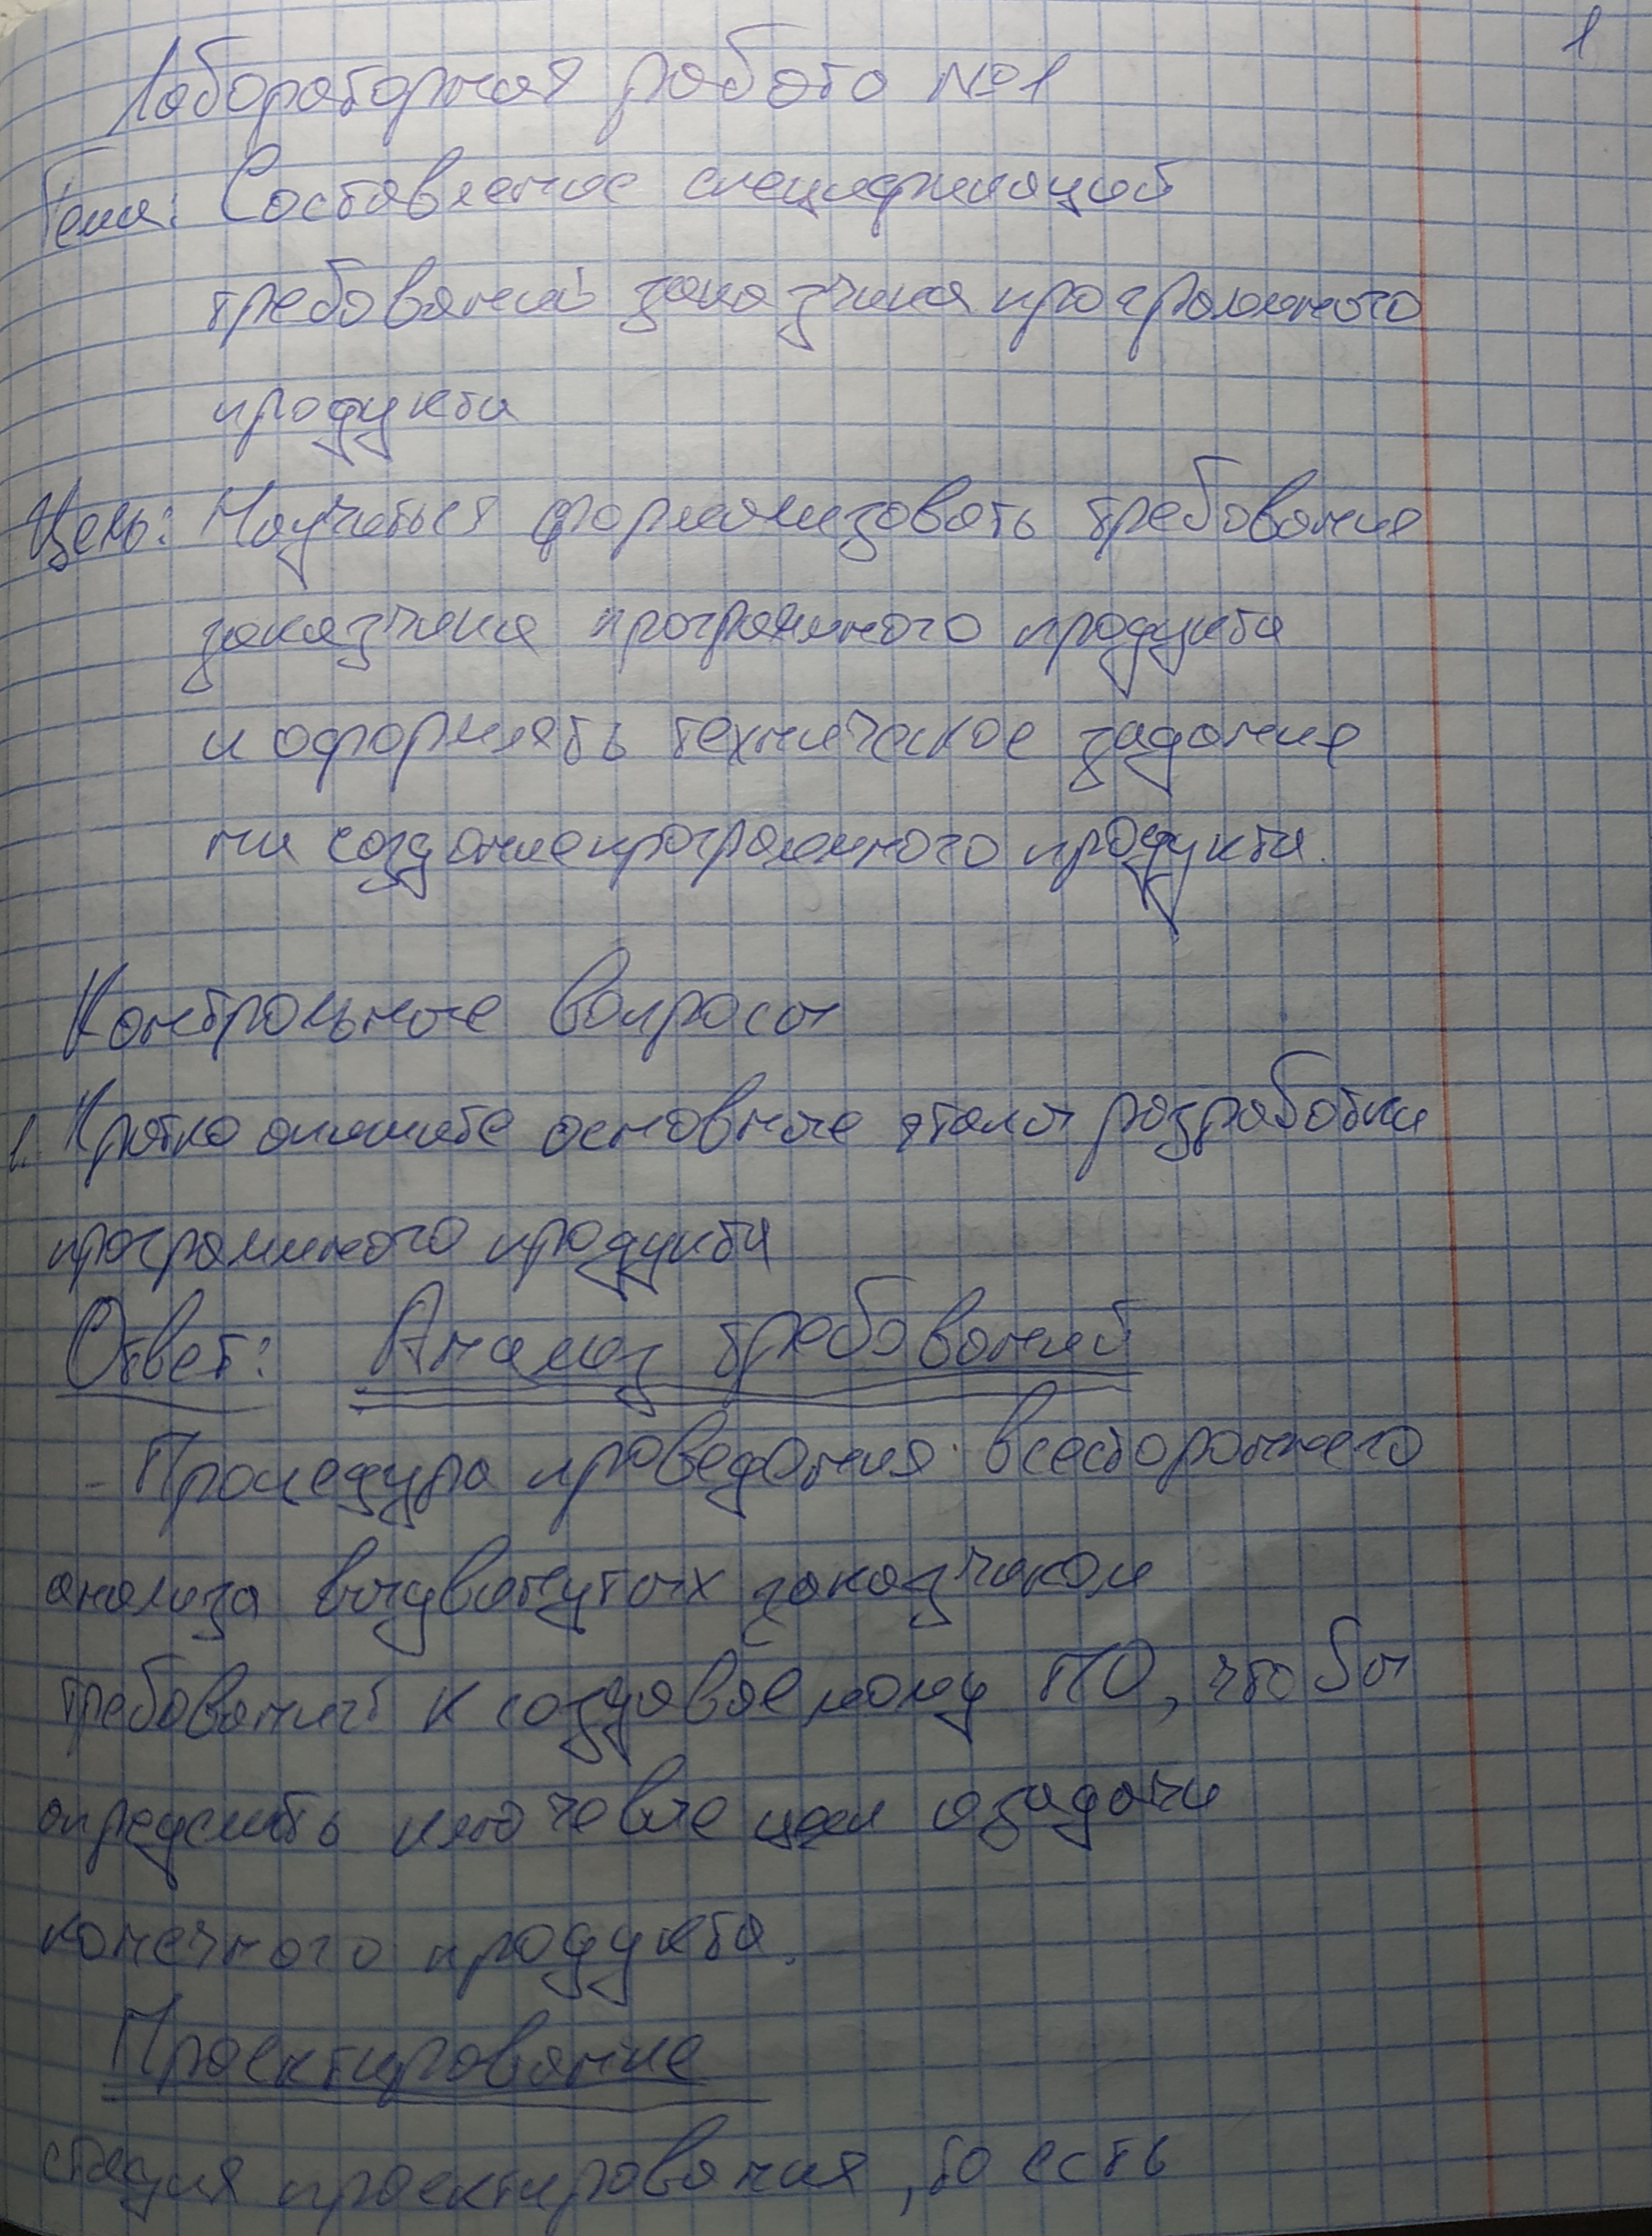 1
Лабораторная работа №1
Тема: Составление спецификаций
требований заказчика программного
продукта
Цель: Научиться формализовать требования
заказчика программного продукта
и оформлять техническое задание
на создание программного продукта.
Контрольные вопросы
1. Кратко опишите основные этапы разработки
программного продукта
Ответ: Анализ требований
- Процедура проведения всестороннего
анализа выдвинутых заказчиком
требований к создаваемому ПО, что бы
определить ключевые цели и задачи
конечного продукта.
Проектирование
стадия проектирования, то есть